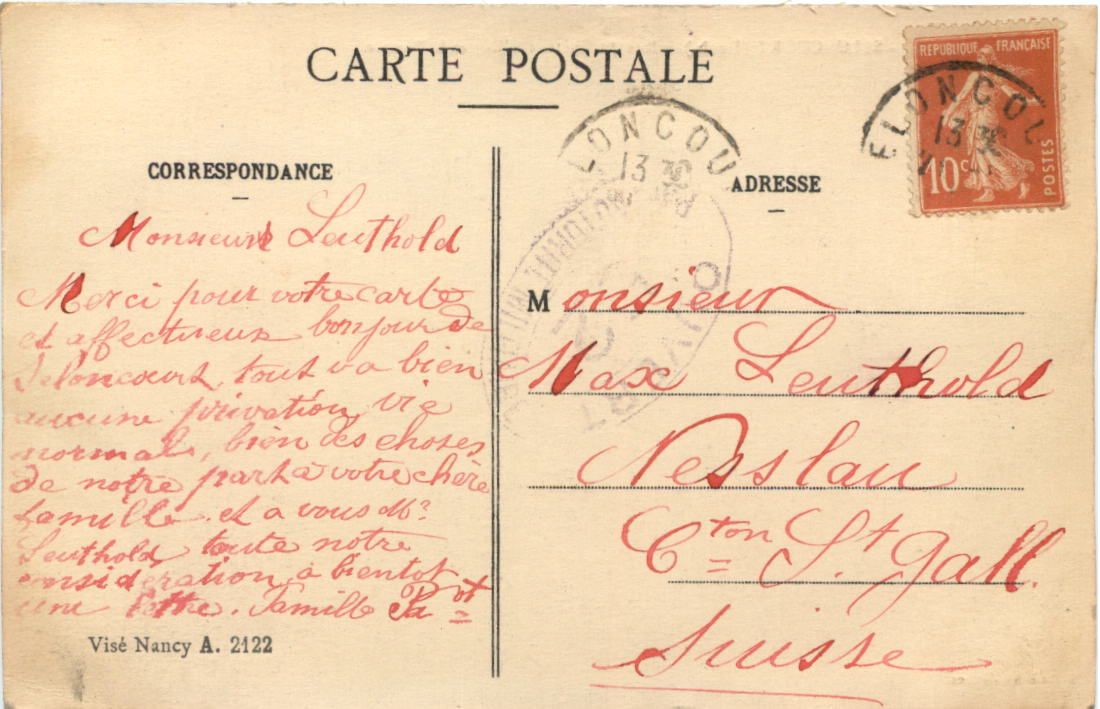 CARTE POSTALE
RÉPUBLIQUE FRANÇAISE
10c
POSTES
ELONCOU
13 30
LONCOU
13 30
CORRESPONDANCE
ADRESSE
Monsieur Leuthold
Merci pour votre carte
et affectueux bonjour de
Seloncourt, tout va bien
aucune privation, vie
normale, bien des choses
de notre part à votre chère
famille. et a vous Mr
Leuthold toute notre
consideration, a bientot
une lettre. Famille
Monsieur
Max Leuthold
Nesslau
Cton St Gall.
Suisse
Visé Nancy A. 2122